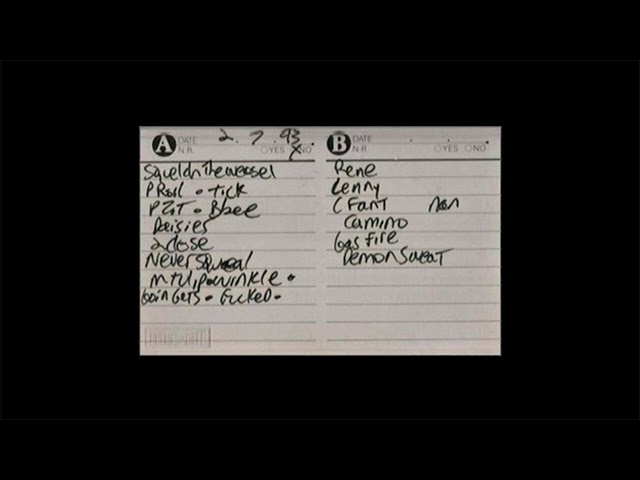 A DATE 2.7.93
N.R. YES X NO
Squeldn The weasel
P Rosl • Tick
P Zot • Bzee
Daisies
2 close
Never Squeal
winkle •
goin Gets • Fucked •
B DATE
N.R. YES NO
Rene
Lenny
C Fant
Camino
Gas Fire
Demon Sweat